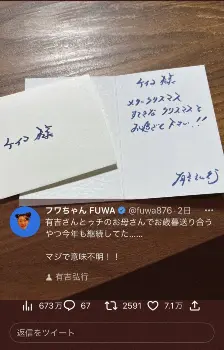 ケイコ様
ケイコ様
メリークリスマス
すてきなクリスマスを
お過ごし下さい!!
フワちゃん FUWA @fuwa876・2日
有吉さんとッチのお母さんでお歳暮送り合う
やつ今年も継続してた……
マジで意味不明！！
有吉弘行
673万 67 2591 7.1万
返信をツイート